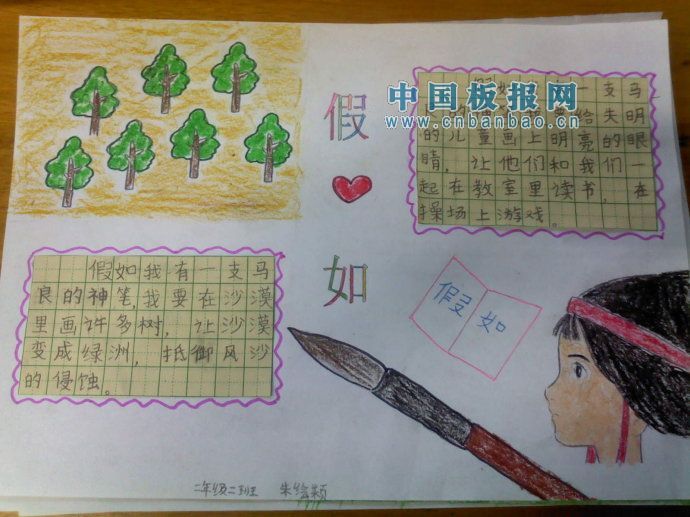 假
如
假如我有一支马
良的神笔,我要在沙漠
里画许多树，让沙漠
变成绿洲，抵御风沙
的侵蚀。
一支马
给失明
的儿童画上明亮的眼
睛，让他们和我们一
起在教室里读书，在
操场上游戏。
中国板报网
www.cnbanbao.cn
假如
二年级二班 朱绘颖